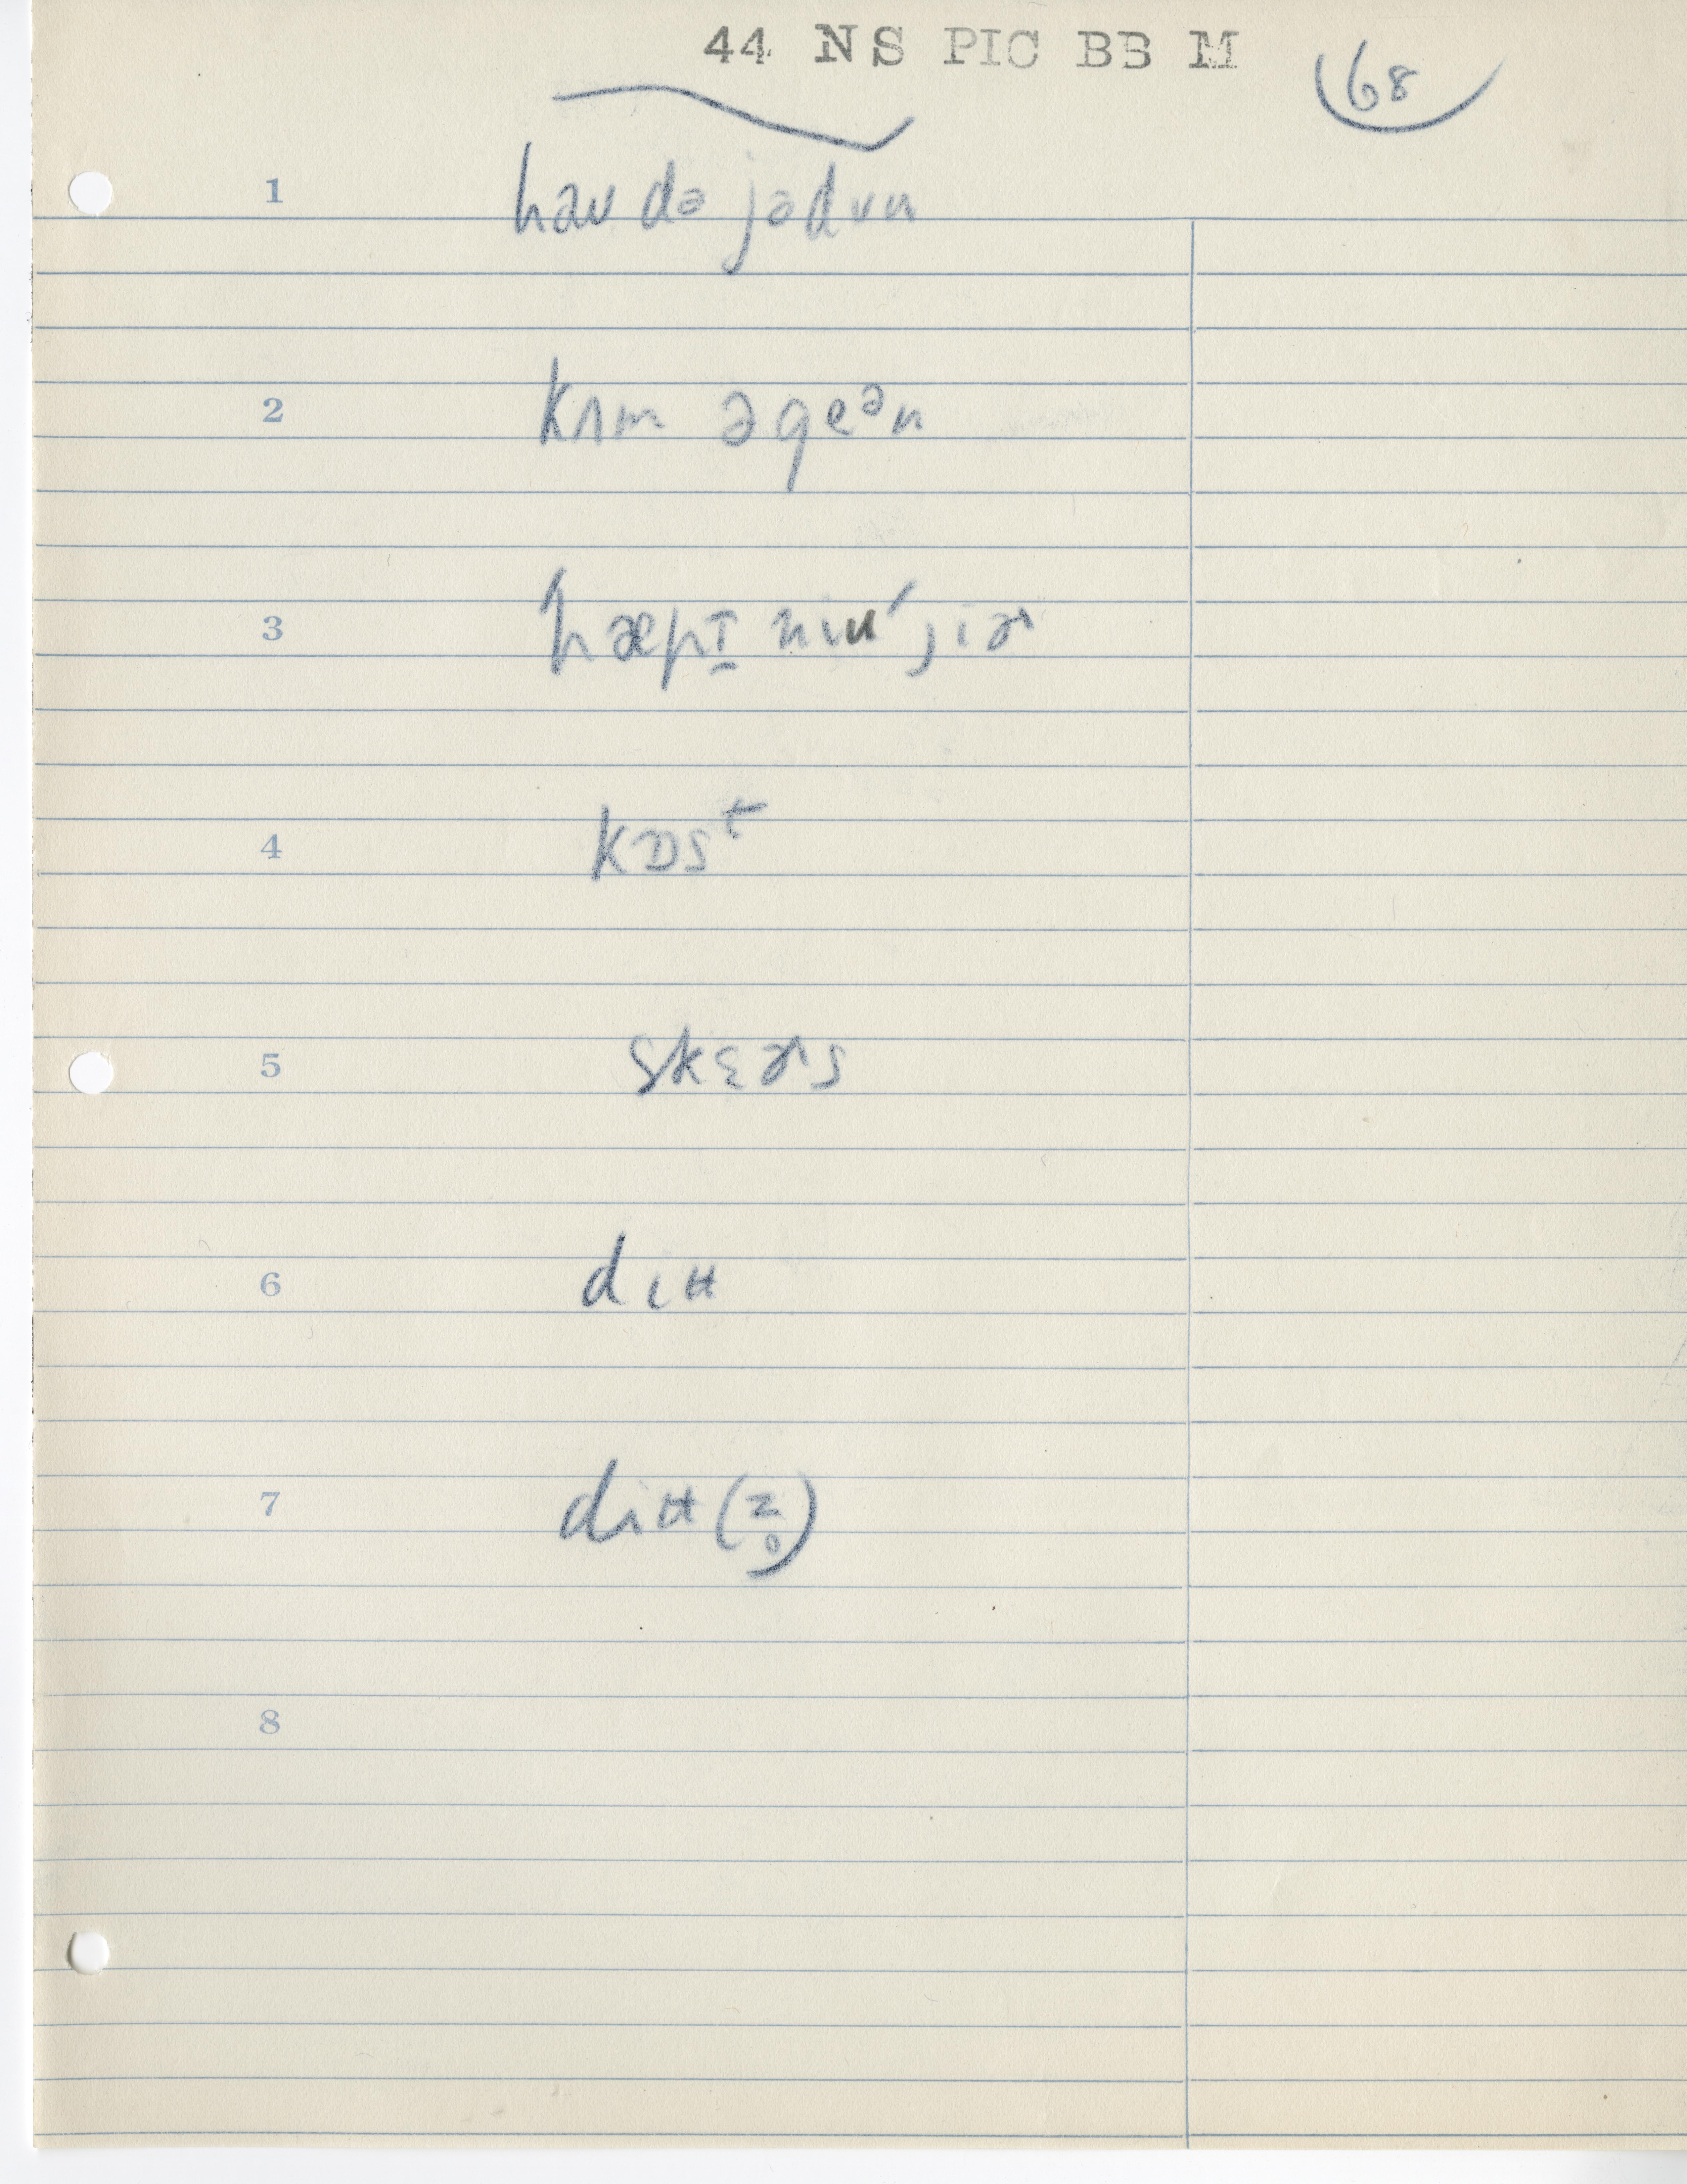 44 NS PIC BB M
68
1 haʊ də jədʊu
2 kʌm əgeᵊn
3 hæpɪ niu´jiɚ
4 kɒsᵗ
5 skɛɚs
6 diʉ
7 diʉ(z̥)
8